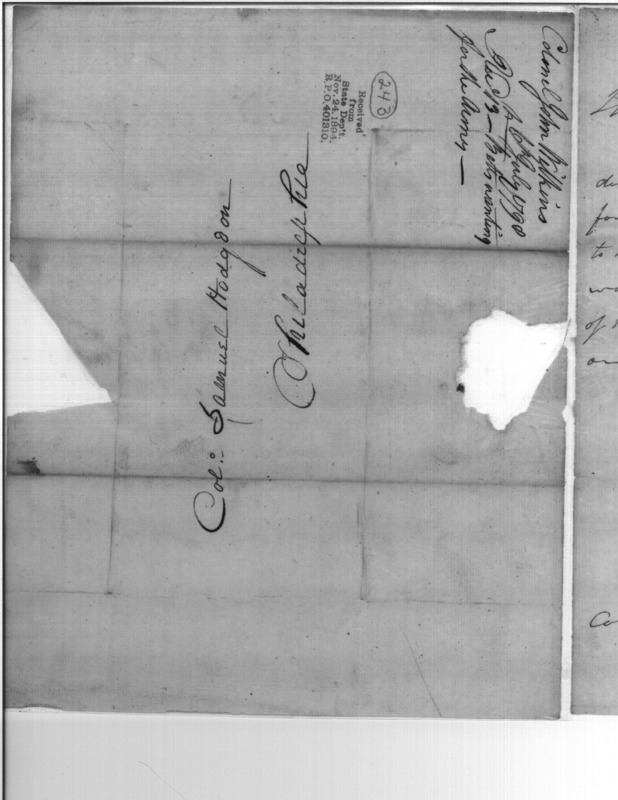 Colonel John Wilkins
July 1798
Rec'd 13 –
for the Army —
243
Received
from
State Dep't.
Nov. 24, 1894.
R.P.O. 401810.
Col: Samuel Hodgdon
Philadelphia
to
of
Co